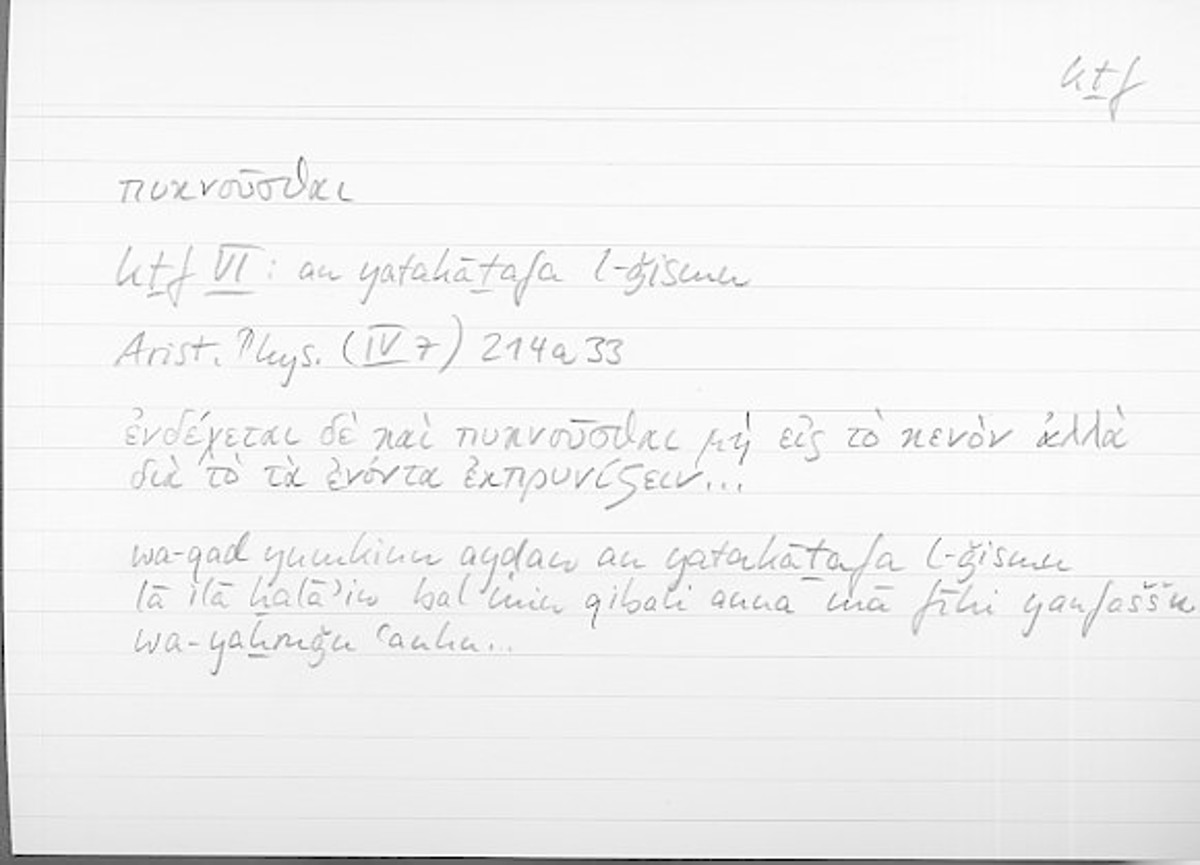 kṯf
πυκνοῦσθαι
kṯf VI: an yatakāṯafa l-ǧismu
Arist. Phys. (IV 7) 214a33
ἐνδέχεται δὲ καὶ πυκνοῦσθαι μὴ εἰς τὸ κενὸν ἀλλὰ
διὰ τὸ τὰ ἐνόντα ἐκπρυνίζειν...
wa-qad yumkinu ayḍan an yatakāṯafa l-ǧismu
lā ilā ḫalāʾin bal min qibali anna mā fīhi yanfaššu
wa-yaḫruǧu ʿanhu...